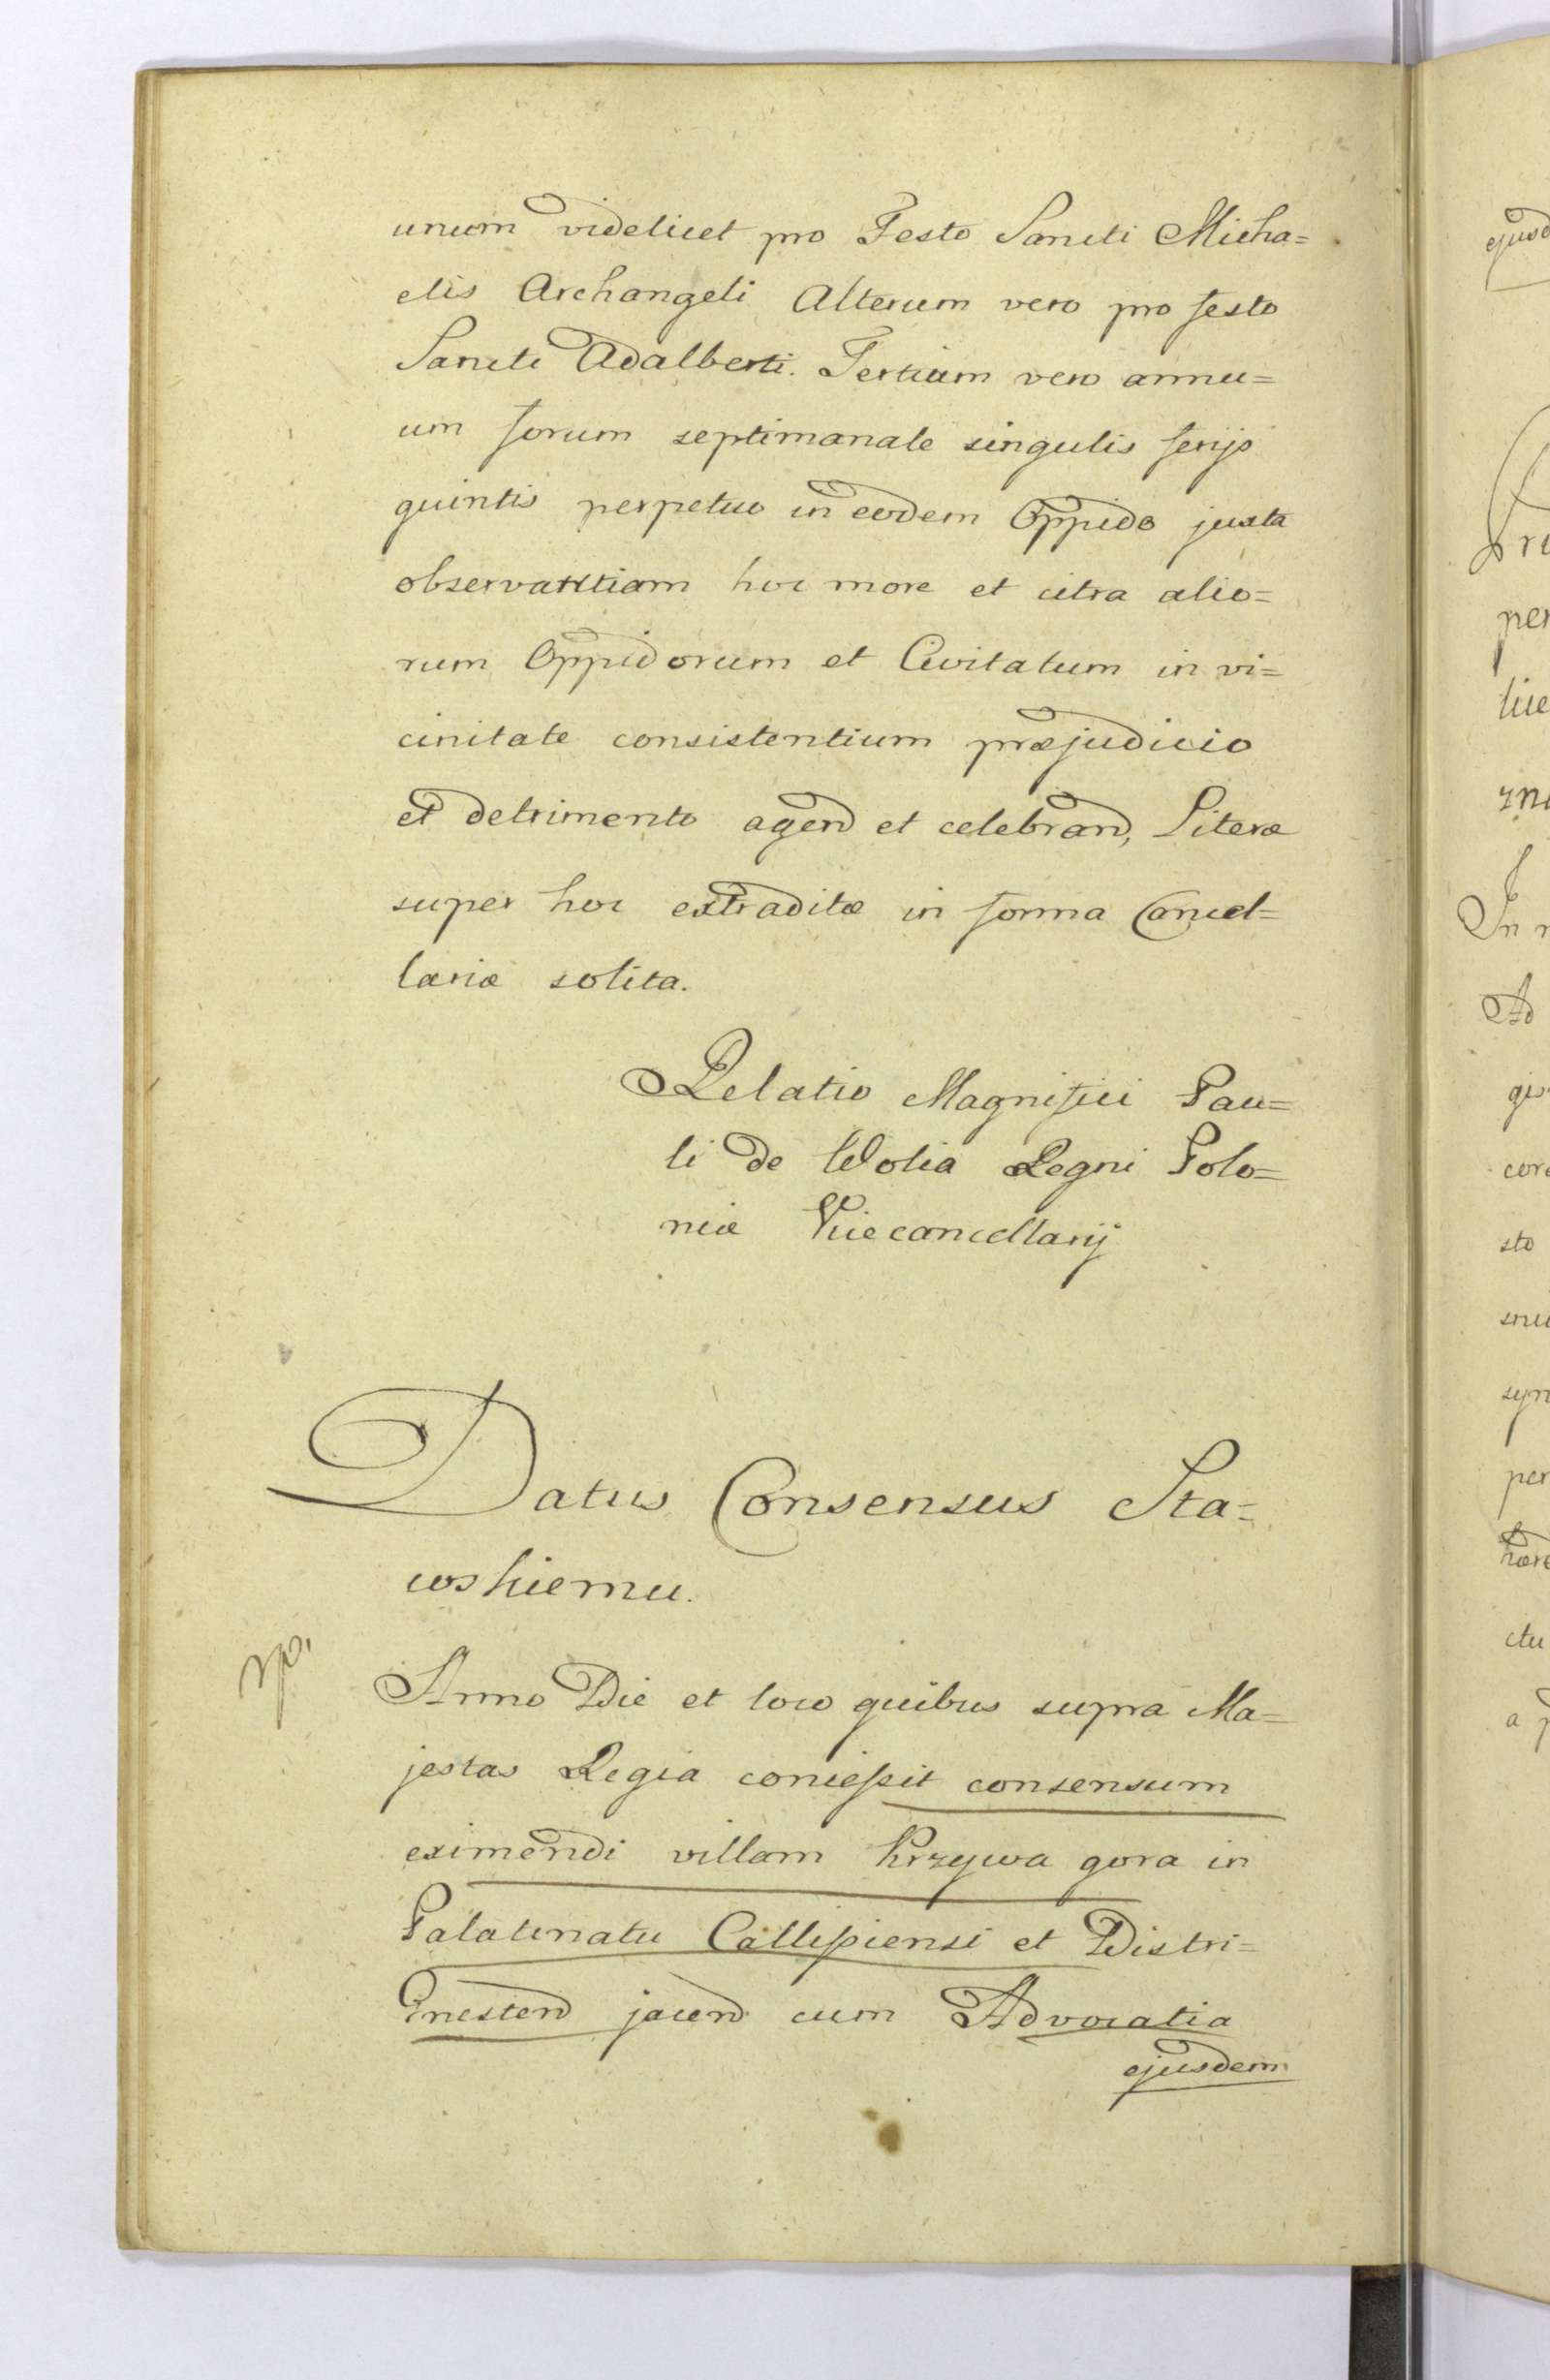 unum videlicet pro Festo Sancti Micha=
elis Archangeli Alterum vero pro festo
Sancti Adalberti. Tertium vero annu=
um forum septimanale singulis ferijs
quintis perpetuo in eodem Oppido juxta
observantiam hoc more et citra alio=
rum Oppidorum et Civitatum in vi=
cinitate consistentium præjudicio
et detrimento agend et celebrand, Literæ
super hoc extraditæ in forma Cancel=
lariæ solita.
Relatio Magnifici Pau=
li de Wolia Regni Polo=
niæ Vicecancellarij
Datus Consensus Sta=
woskiemu.
Anno Die et loco quibus supra Ma=
jestas Regia concessit consensum
eximendi villam Krzywa gora in
Palatinatu Callissiensi et Distri=
Gnesten jacend cum Advocatia
ejusdem
ejusd
per
lice
In n
Ad
gis
core
sto
syn
per
ctu
a